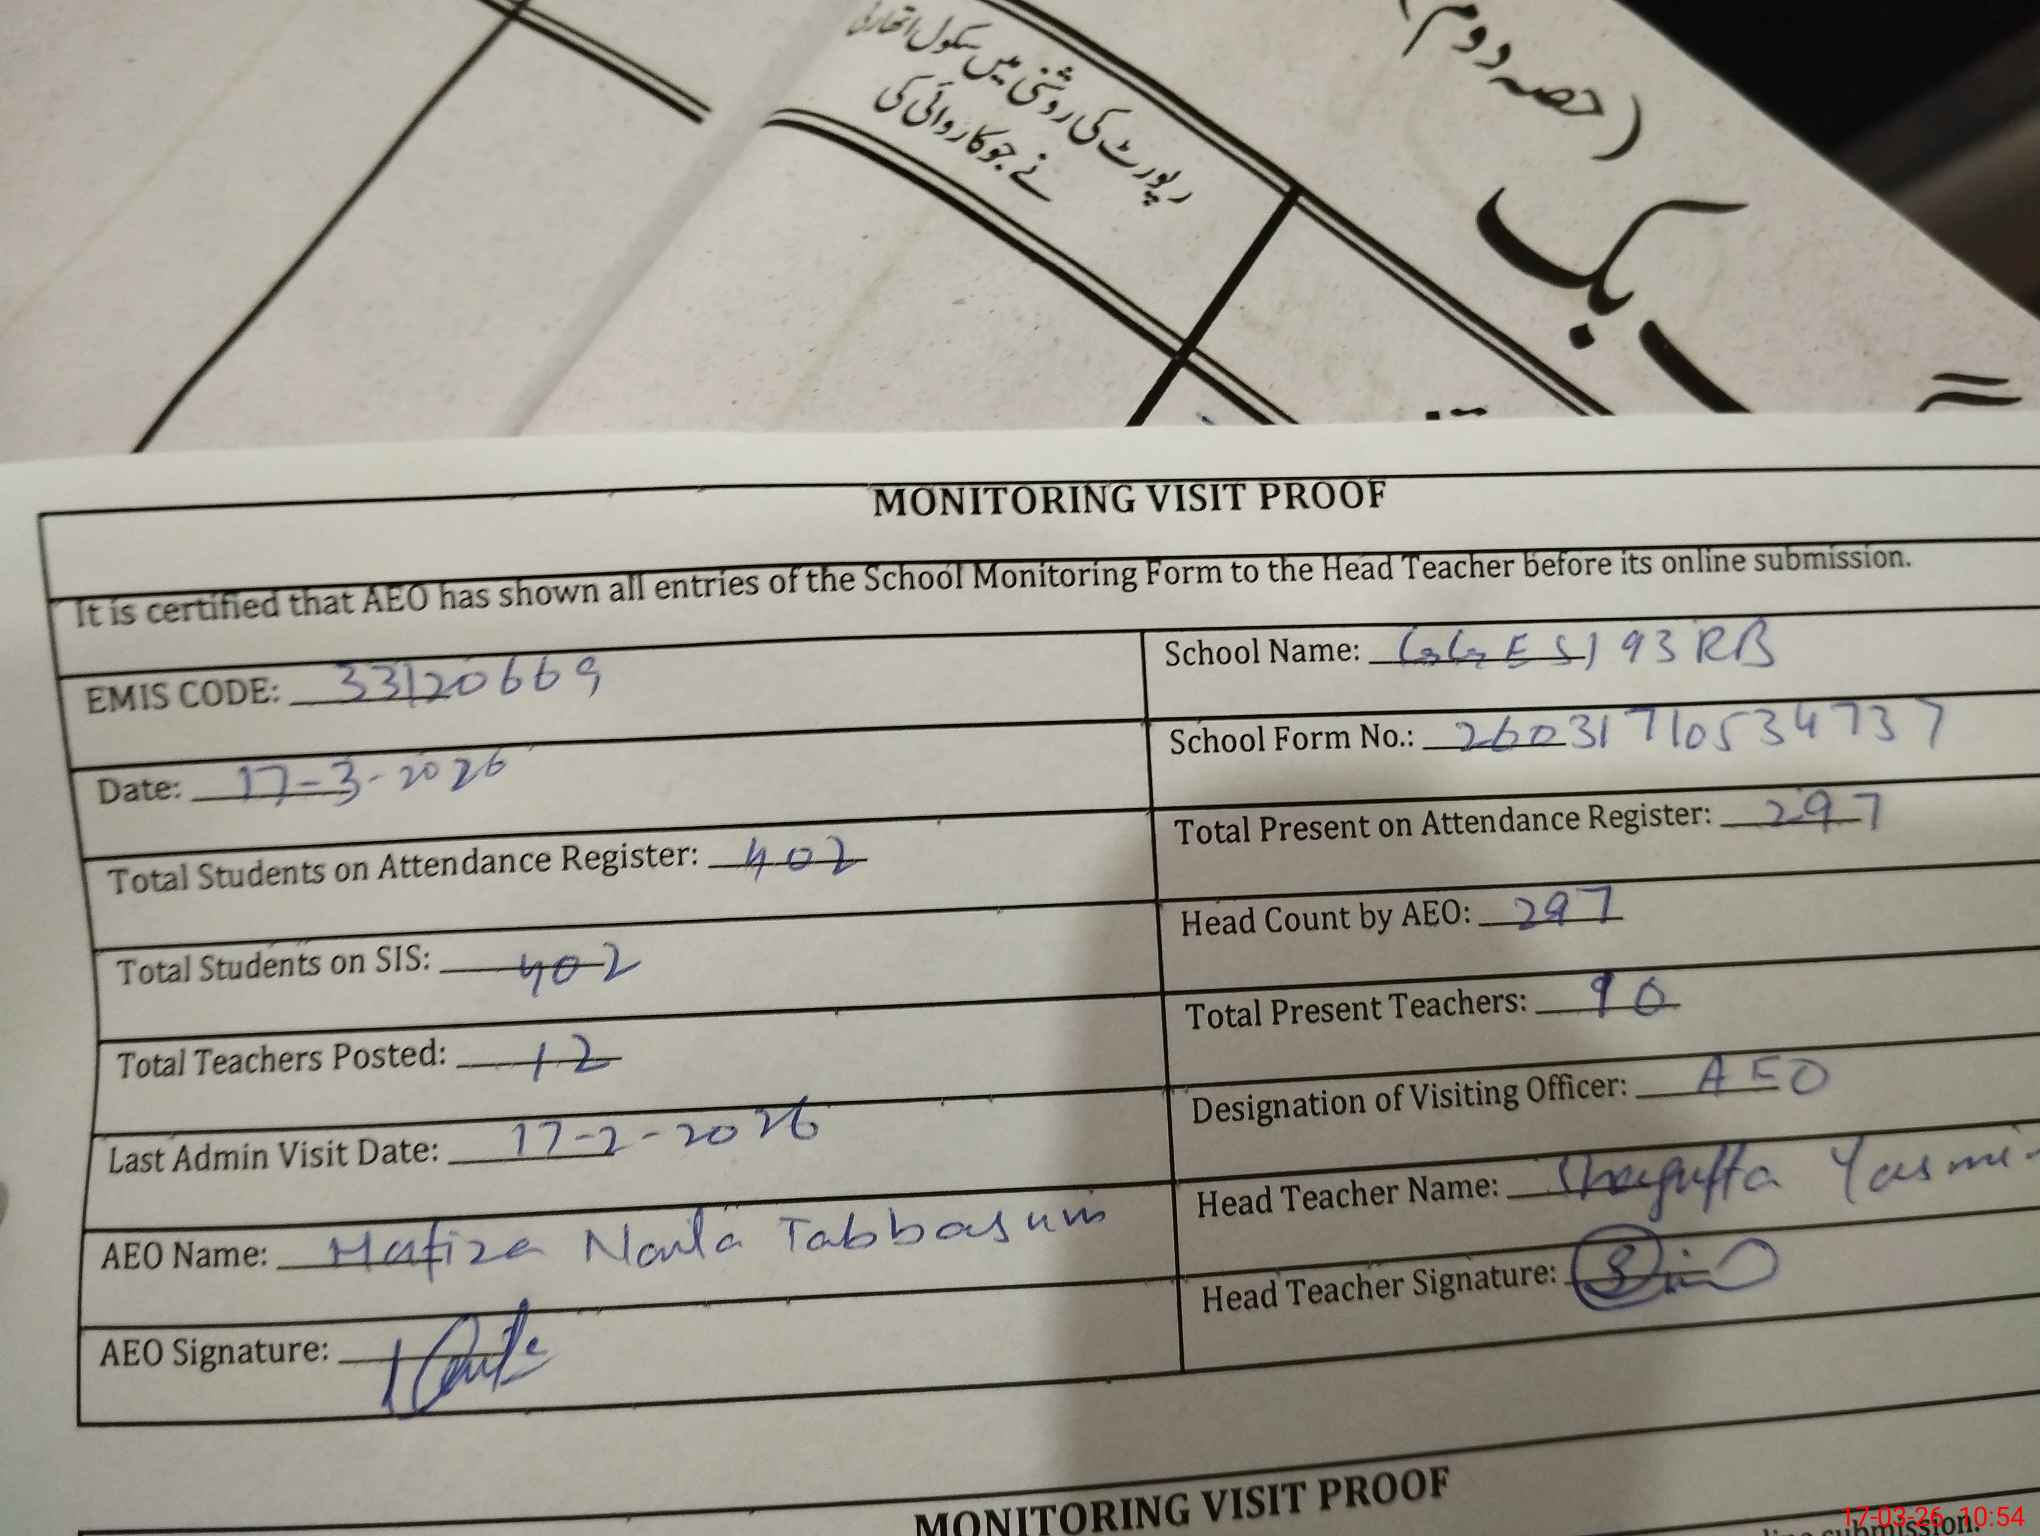 (حصہ دوم)
رپورٹ کی روشنی میں سکول اتھارٹی
نے جو کاروائی کی
MONITORING VISIT PROOF
It is certified that AEO has shown all entries of the School Monitoring Form to the Head Teacher before its online submission.
EMIS CODE: 33120669
School Name: GGES 193 RB
Date: 17-3-2026
School Form No.: 26031710534737
Total Students on Attendance Register: 402
Total Present on Attendance Register: 297
Total Students on SIS: 402
Head Count by AEO: 297
Total Teachers Posted: 12
Total Present Teachers: 10
Last Admin Visit Date: 17-2-2026
Designation of Visiting Officer: AEO
AEO Name: Hafiza Naila Tabbasum
Head Teacher Name: Shagufta Yasmi
AEO Signature:
Head Teacher Signature:
MONITORING VISIT PROOF
submission.
17-03-26 10:54